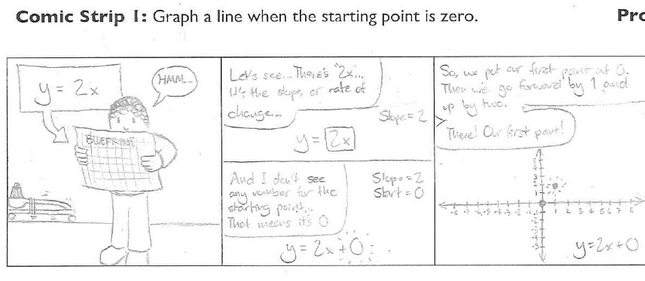 Comic Strip 1: Graph a line when the starting point is zero.
Pro
y = 2x
HMM...
BLUEPRINT
Let's see... There's "2x"...
It's the slope, or rate of
change...
Slope = 2
y = 2x
And I don't see
any number for the
starting point...
That means it's 0
Slope = 2
Start = 0
y = 2x + 0
So, we put our first point at 0.
Then we go forward by 1 and
up by two.
There! Our first point!
y = 2x + 0